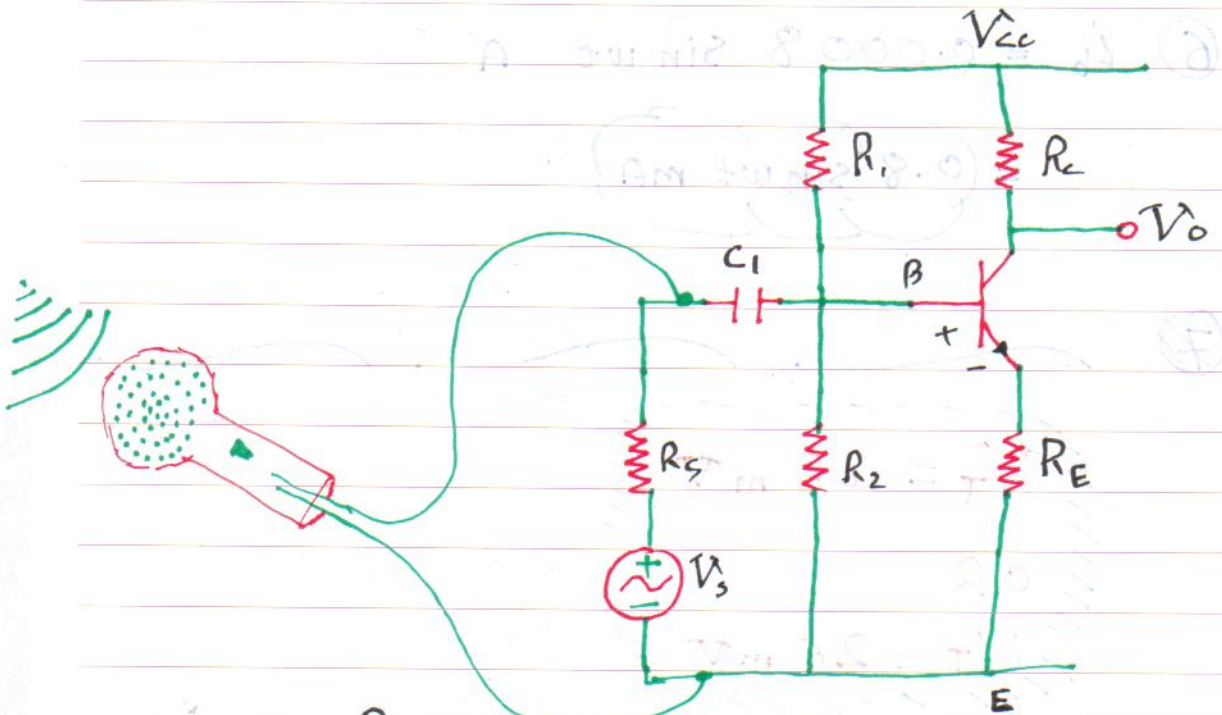 Vcc
R1
Rc
Vo
C1
B
+
-
Rs
R2
RE
+
-
Vs
E